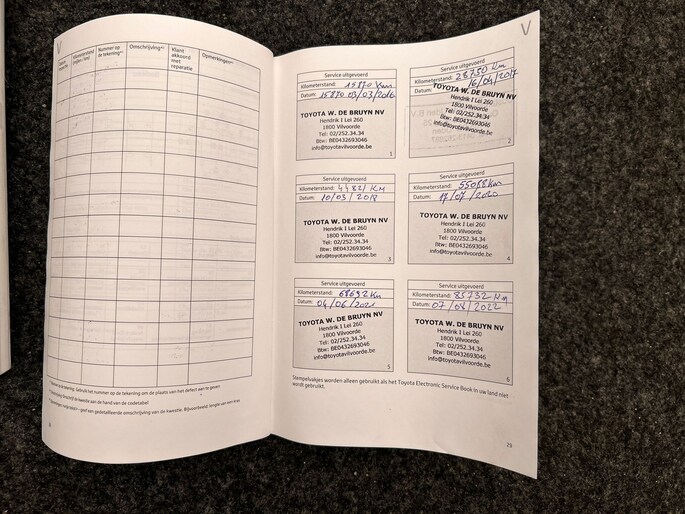 Datum
Kilometerstand
Nummer op
de tekening*¹
Omschrijving*²
Klant
akkoord
met
reparatie
Opmerkingen*³
Service uitgevoerd
Kilometerstand: 15870 Km
Datum: 15870 03/03/2016
TOYOTA W. DE BRUYN NV
Hendrik I Lei 260
1800 Vilvoorde
Tel: 02/252.34.34
Btw: BE0432693046
info@toyotavilvoorde.be
1
Service uitgevoerd
Kilometerstand: 28750 Km
Datum: 16/04/2017
TOYOTA W. DE BRUYN NV
Hendrik I Lei 260
1800 Vilvoorde
Tel: 02/252.34.34
Btw: BE0432693046
info@toyotavilvoorde.be
2
Service uitgevoerd
Kilometerstand: 44821 Km
Datum: 10/03/2018
TOYOTA W. DE BRUYN NV
Hendrik I Lei 260
1800 Vilvoorde
Tel: 02/252.34.34
Btw: BE0432693046
info@toyotavilvoorde.be
3
Service uitgevoerd
Kilometerstand: 55068 Km
Datum: 17/07/2020
TOYOTA W. DE BRUYN NV
Hendrik I Lei 260
1800 Vilvoorde
Tel: 02/252.34.34
Btw: BE0432693046
info@toyotavilvoorde.be
4
Service uitgevoerd
Kilometerstand: 68692 Km
Datum: 04/06/2021
TOYOTA W. DE BRUYN NV
Hendrik I Lei 260
1800 Vilvoorde
Tel: 02/252.34.34
Btw: BE0432693046
info@toyotavilvoorde.be
5
Service uitgevoerd
Kilometerstand: 85732 Km
Datum: 07/08/2022
TOYOTA W. DE BRUYN NV
Hendrik I Lei 260
1800 Vilvoorde
Tel: 02/252.34.34
Btw: BE0432693046
info@toyotavilvoorde.be
6
Stempelvakjes worden alleen gebruikt als het Toyota Electronic Service Book in uw land niet
wordt gebruikt.
25